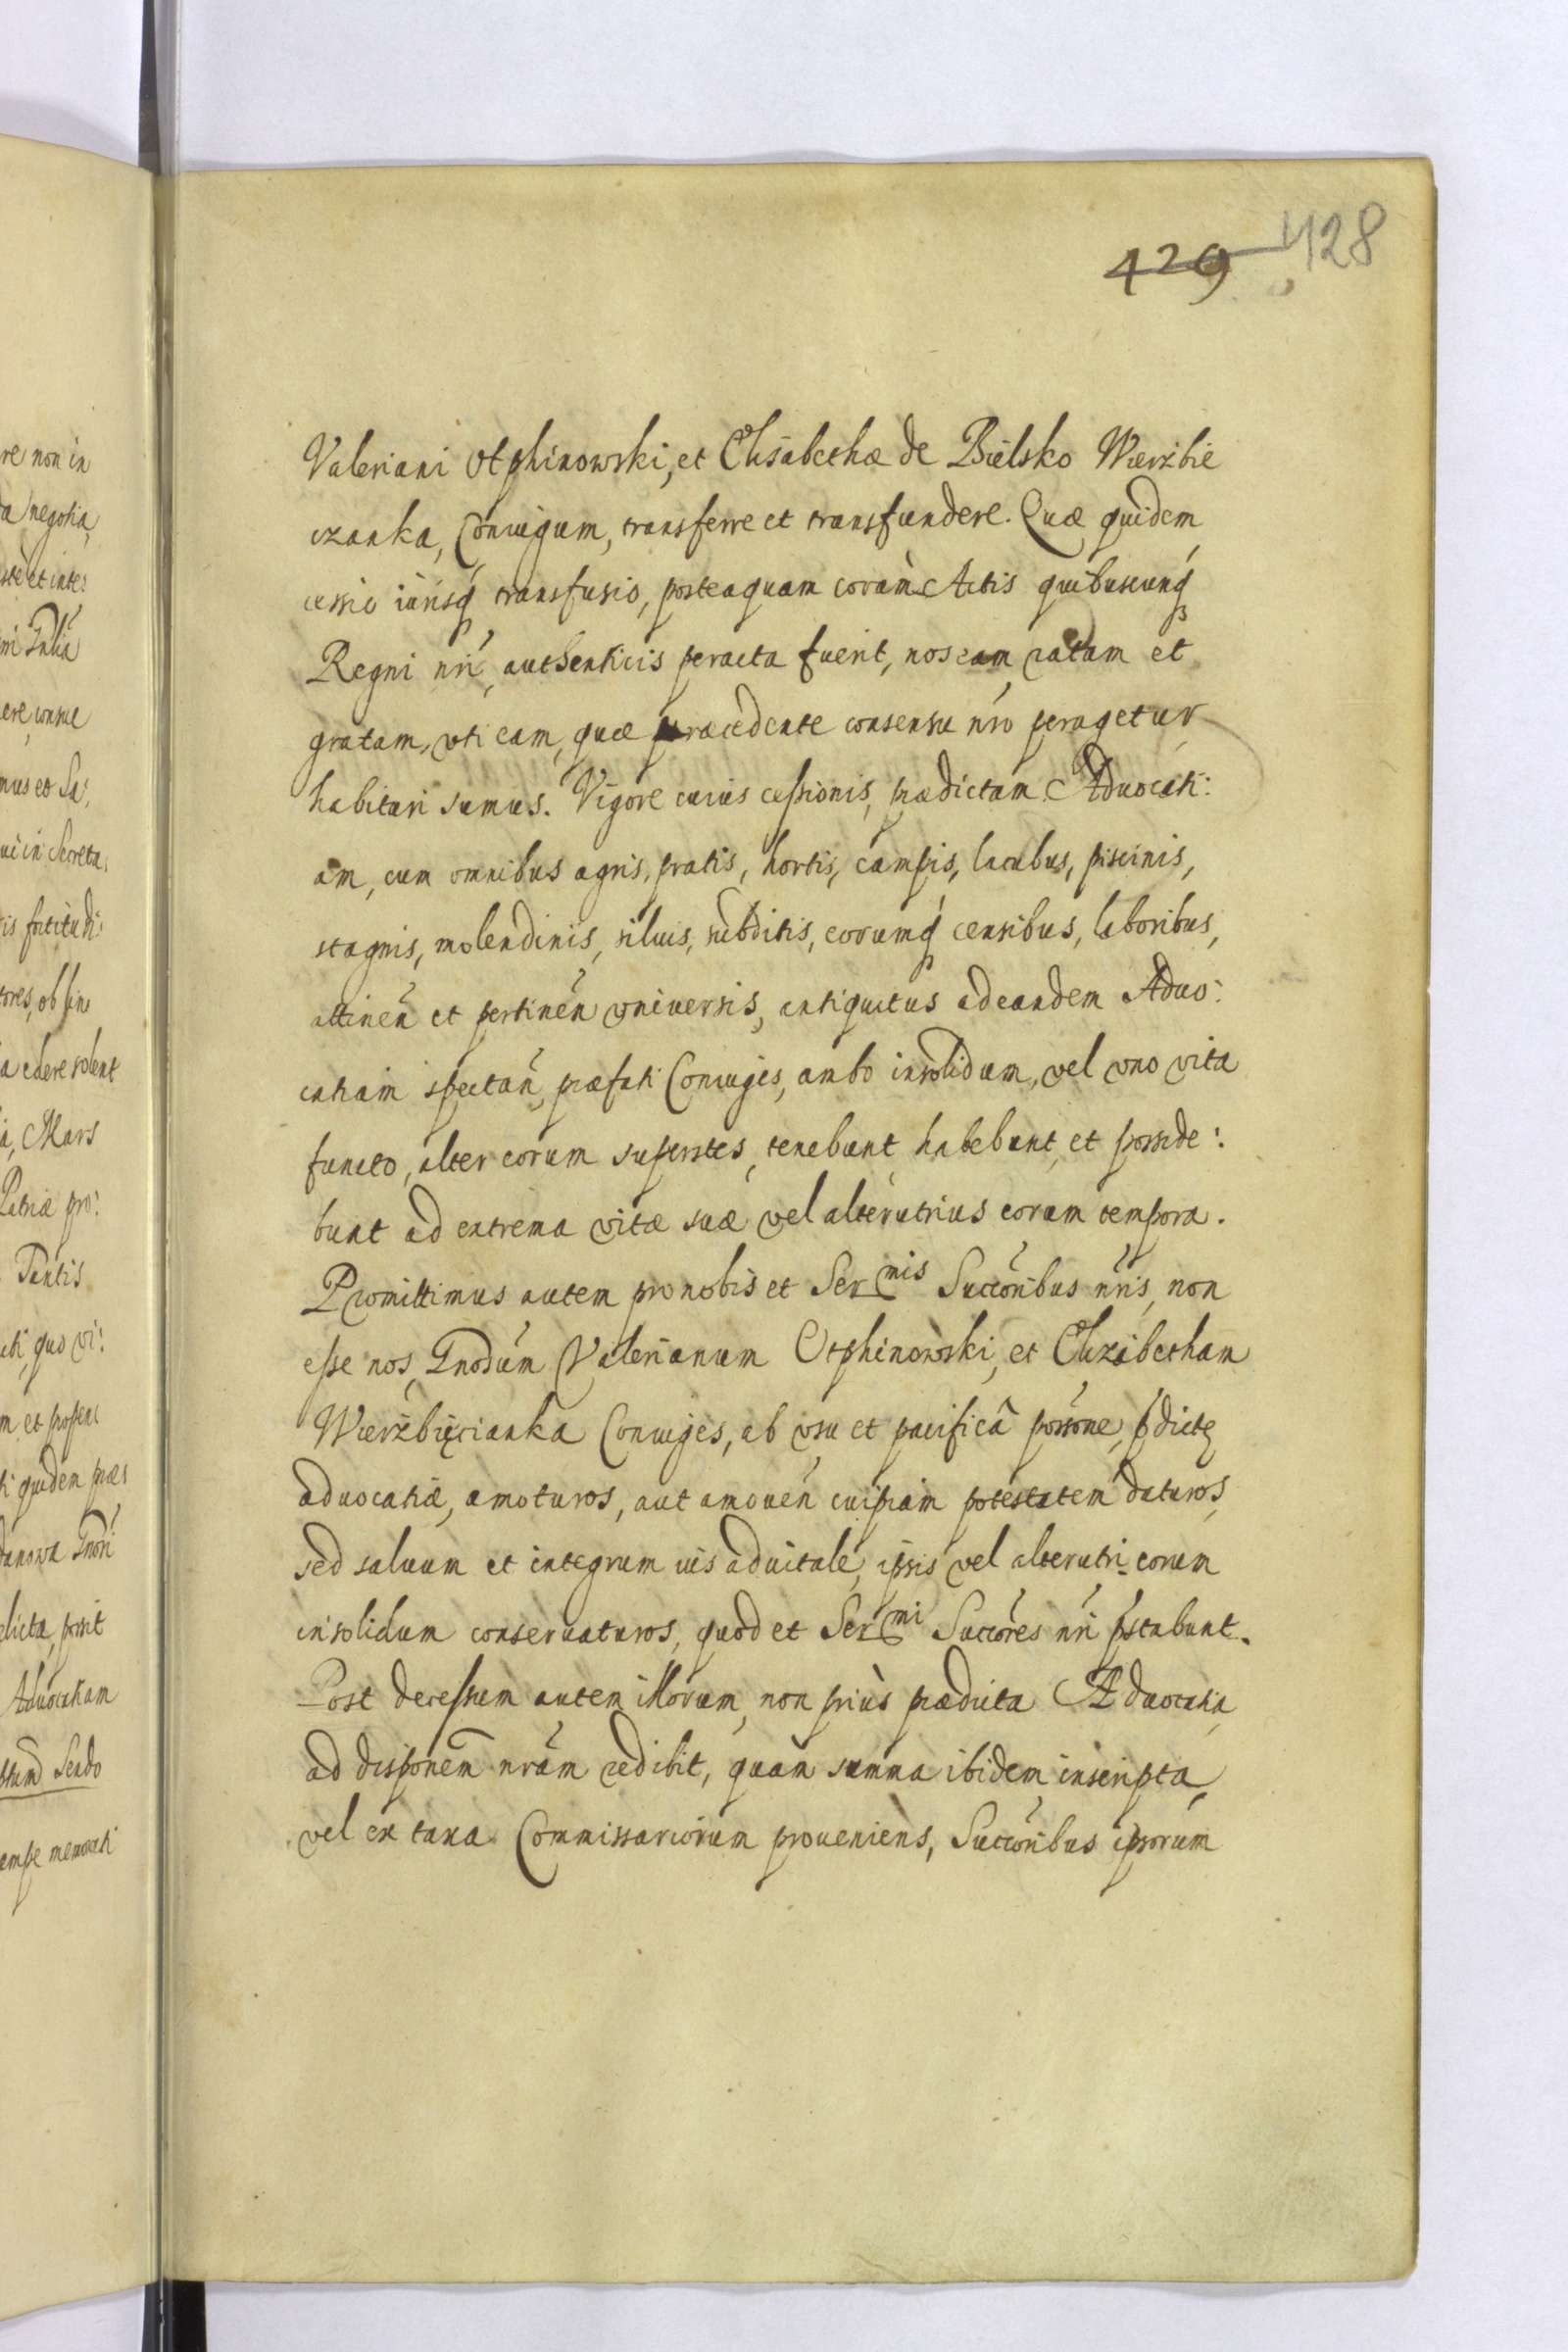 429 428
Valeriani Otphinowski, et Elisabethæ de Bielsko Wierzbie
czanka, Coniugum, transferre et transfundere. Quæ quidem
cessio iurisq́ transfusio, posteaquam coram Actis quibuscunq́
Regni nri, authenticis peracta fuerit, nos eam ratam et
gratam, vti eam, quæ præcedente consensu nro peragetur
habituri sumus. Vigore cuius cessionis, prædictam Aduocati:
am, cum omnibus agris, pratis, hortis, campis, lacubus, piscinis,
stagnis, molendinis, siluis, subditis, eorumq́ censibus, laboribus,
attinen̄ et pertinen̄ vniuersis, antiquitus ad eandem Aduo:
catiam spectan̄, præfati Coniuges, ambo insolidum, vel vno vita
functo, alter eorum superstes, tenebunt habebunt, et posside:
bunt ad extrema vitæ suæ vel alterutrius eorum tempora.
Promittimus autem pro nobis et Ser<sup>mis</sup> Succoribus nris, non
esse nos, Gnosum Valerianum Otphinowski, et Elizabetham
Wierzbięcianka Coniuges, ab vsu et pacificâ possone, pdictę
aduocatiæ, amoturos, aut amouen̄ cuipiam potestatem daturos,
sed saluum et integrum ius aduitale, ipsis vel alterutri eorum
insolidum conseruaturos, quod et Ser<sup>mi</sup> Succores nri pstabunt.
Post decessum autem illorum, non priùs prædicta Aduocatia
ad disponem nram redibit, quàm summa ibidem inscripta,
vel ex taxa Commissariorum proueniens, Succoribus ipsorum
re non in
negotia,
ere, consue
mus et Sa:
ui in Secreta,
tores, ob sin
a edere solent
a, Mars
Patriæ pro:
Tantis
quo vi:
m et
quidem præ
danowa
dicta, possit
Aduocatiam
Sendo
empe memorati